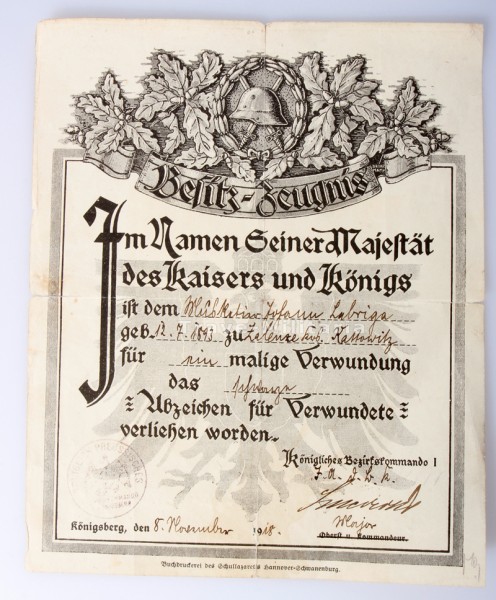 Besitz-Zeugnis
Im Namen Seiner Majestät
des Kaisers und Königs
ist dem Musketier Johann Labriga
geb. 12.7.1893 zu Zalenze Krs. Kattowitz
für ein malige Verwundung
das schwarze
Abzeichen für Verwundete
verliehen worden.
Königliches Bezirkskommando I
Königsberg, den 8. November 1918.
Major
Oberst u. Kommandeur.
Buchdruckerei des Schullazaretts Hannover-Schwanenburg.